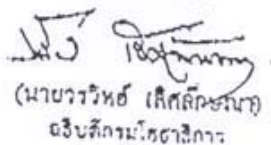 (นายวรวิทย์ เลิศลักษณา)
อธิบดีกรมโยธาธิการ